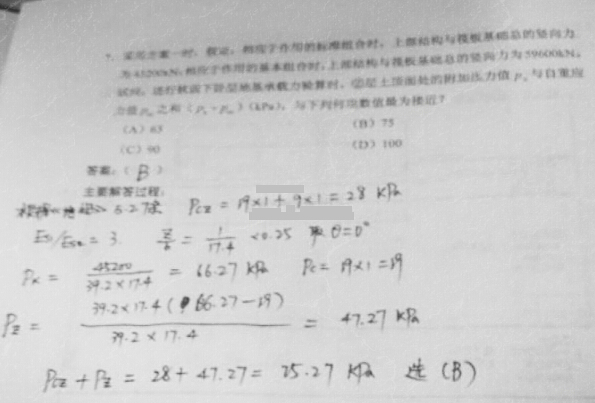 采用方案一时，假定，相应于作用的标准组合时，上部结构与筏板基础总的竖向力
为45200kN；相应于作用的基本组合时，上部结构与筏板基础总的竖向力为59600kN。
试问，进行软弱下卧层地基承载力验算时，②层土顶面处的附加压力值 pz 与自重应
力值 pcz 之和（pz+pcz）（kPa），与下列何项数值最为接近？
（A）63 （B）75
（C）90 （D）100
答案：（ B ）
主要解答过程：
5.2.7条 Pcz = 19×1 + 9×1 = 28 kPa
Es1/Es2 = 3. z/b = 1/17.4 <0.25 取 θ=0°
Pk = 45200/39.2×17.4 = 66.27 kPa Pc = 19×1 = 19
Pz = 39.2×17.4(66.27-19)/39.2×17.4 = 47.27 kPa
Pcz + Pz = 28 + 47.27 = 75.27 kPa 选 (B)